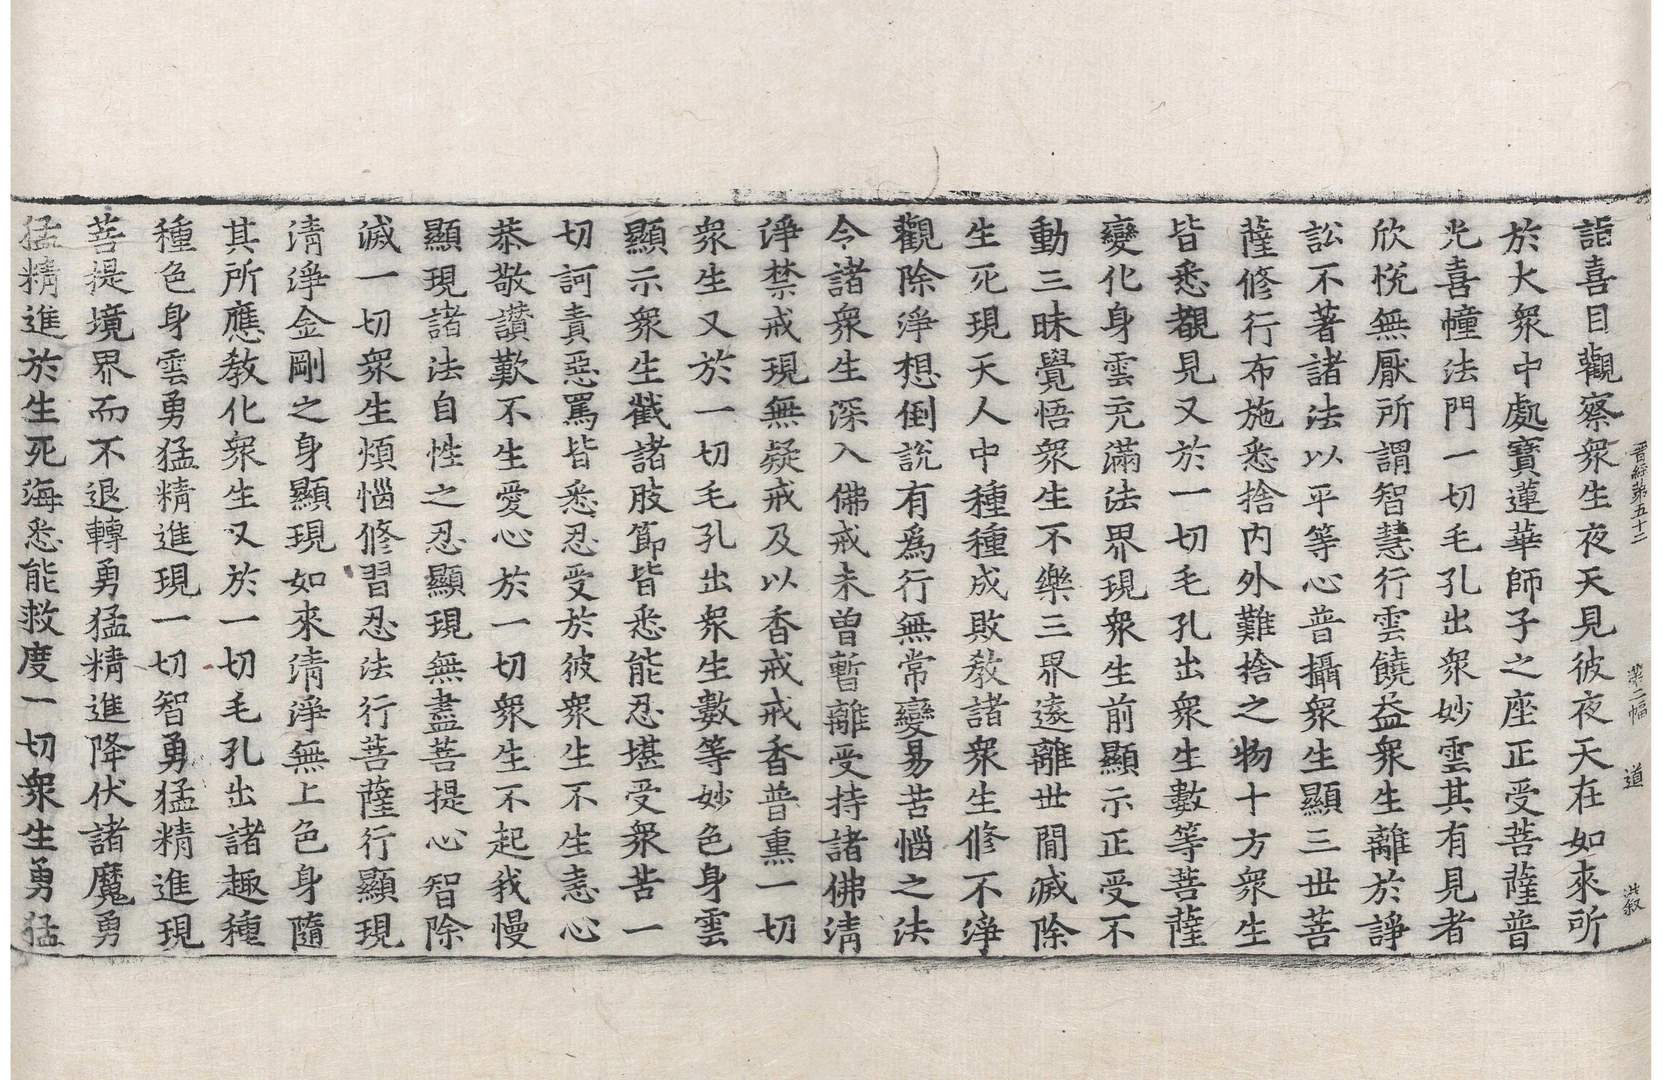 詣喜目觀察衆生夜天見彼夜天在如來所
於大衆中處寶蓮華師子之座正受菩薩普
光喜幢法門一切毛孔出衆妙雲其有見者
欣悅無厭所謂智慧行雲饒益衆生離於諍
訟不著諸法以平等心普攝衆生顯三世菩
薩修行布施悉捨內外難捨之物十方衆生
皆悉覩見又於一切毛孔出衆生數等菩薩
變化身雲充滿法界現衆生前顯示正受不
動三昧覺悟衆生不樂三界遠離世間滅除
生死現天人中種種成敗教諸衆生修不淨
觀除淨想倒說有爲行無常變易苦惱之法
令諸衆生深入佛戒未曾暫離受持諸佛清
淨禁戒現無疑戒及以香戒戒香普熏一切
衆生又於一切毛孔出衆生數等妙色身雲
顯示衆生截諸肢節皆悉能忍堪受衆苦一
切訶責惡罵皆悉忍受於彼衆生不生恚心
恭敬讚歎不生愛心於一切衆生不起我慢
顯現諸法自性之忍顯現無盡菩提心智除
滅一切衆生煩惱修習忍法行菩薩行顯現
清淨金剛之身顯現如來清淨無上色身隨
其所應教化衆生又於一切毛孔出諸趣種
種色身雲勇猛精進現一切智勇猛精進現
菩提境界而不退轉勇猛精進降伏諸魔勇
猛精進於生死海悉能救度一切衆生勇猛
晋經第五十二 第二幅 道 洪叙